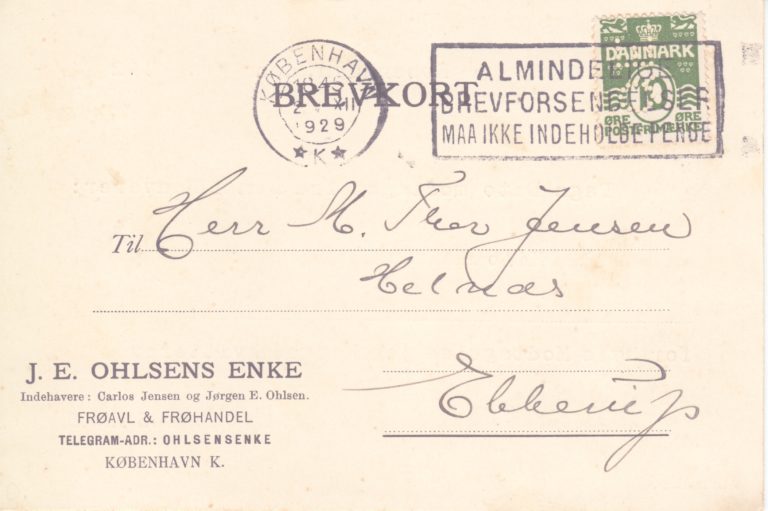 KØBENHAVN
1929
★ K ★
BREVKORT
ALMINDELIGE
BREVFORSENDELSER
MAA IKKE INDEHOLDE PENGE
DANMARK
10
ØRE ØRE
POSTFRIMÆRKE
Til Herr M. Thor Jensen
Helnæs
Ebberup
J. E. OHLSENS ENKE
Indehavere: Carlos Jensen og Jørgen E. Ohlsen.
FRØAVL & FRØHANDEL
TELEGRAM-ADR.: OHLSENSENKE
KØBENHAVN K.